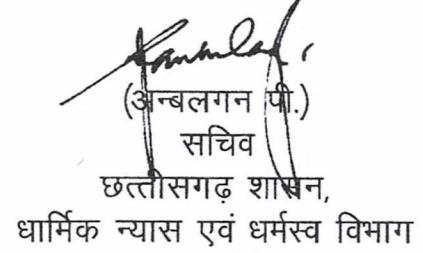 (अन्बलगन पी.)
सचिव
छत्तीसगढ़ शासन,
धार्मिक न्यास एवं धर्मस्व विभाग